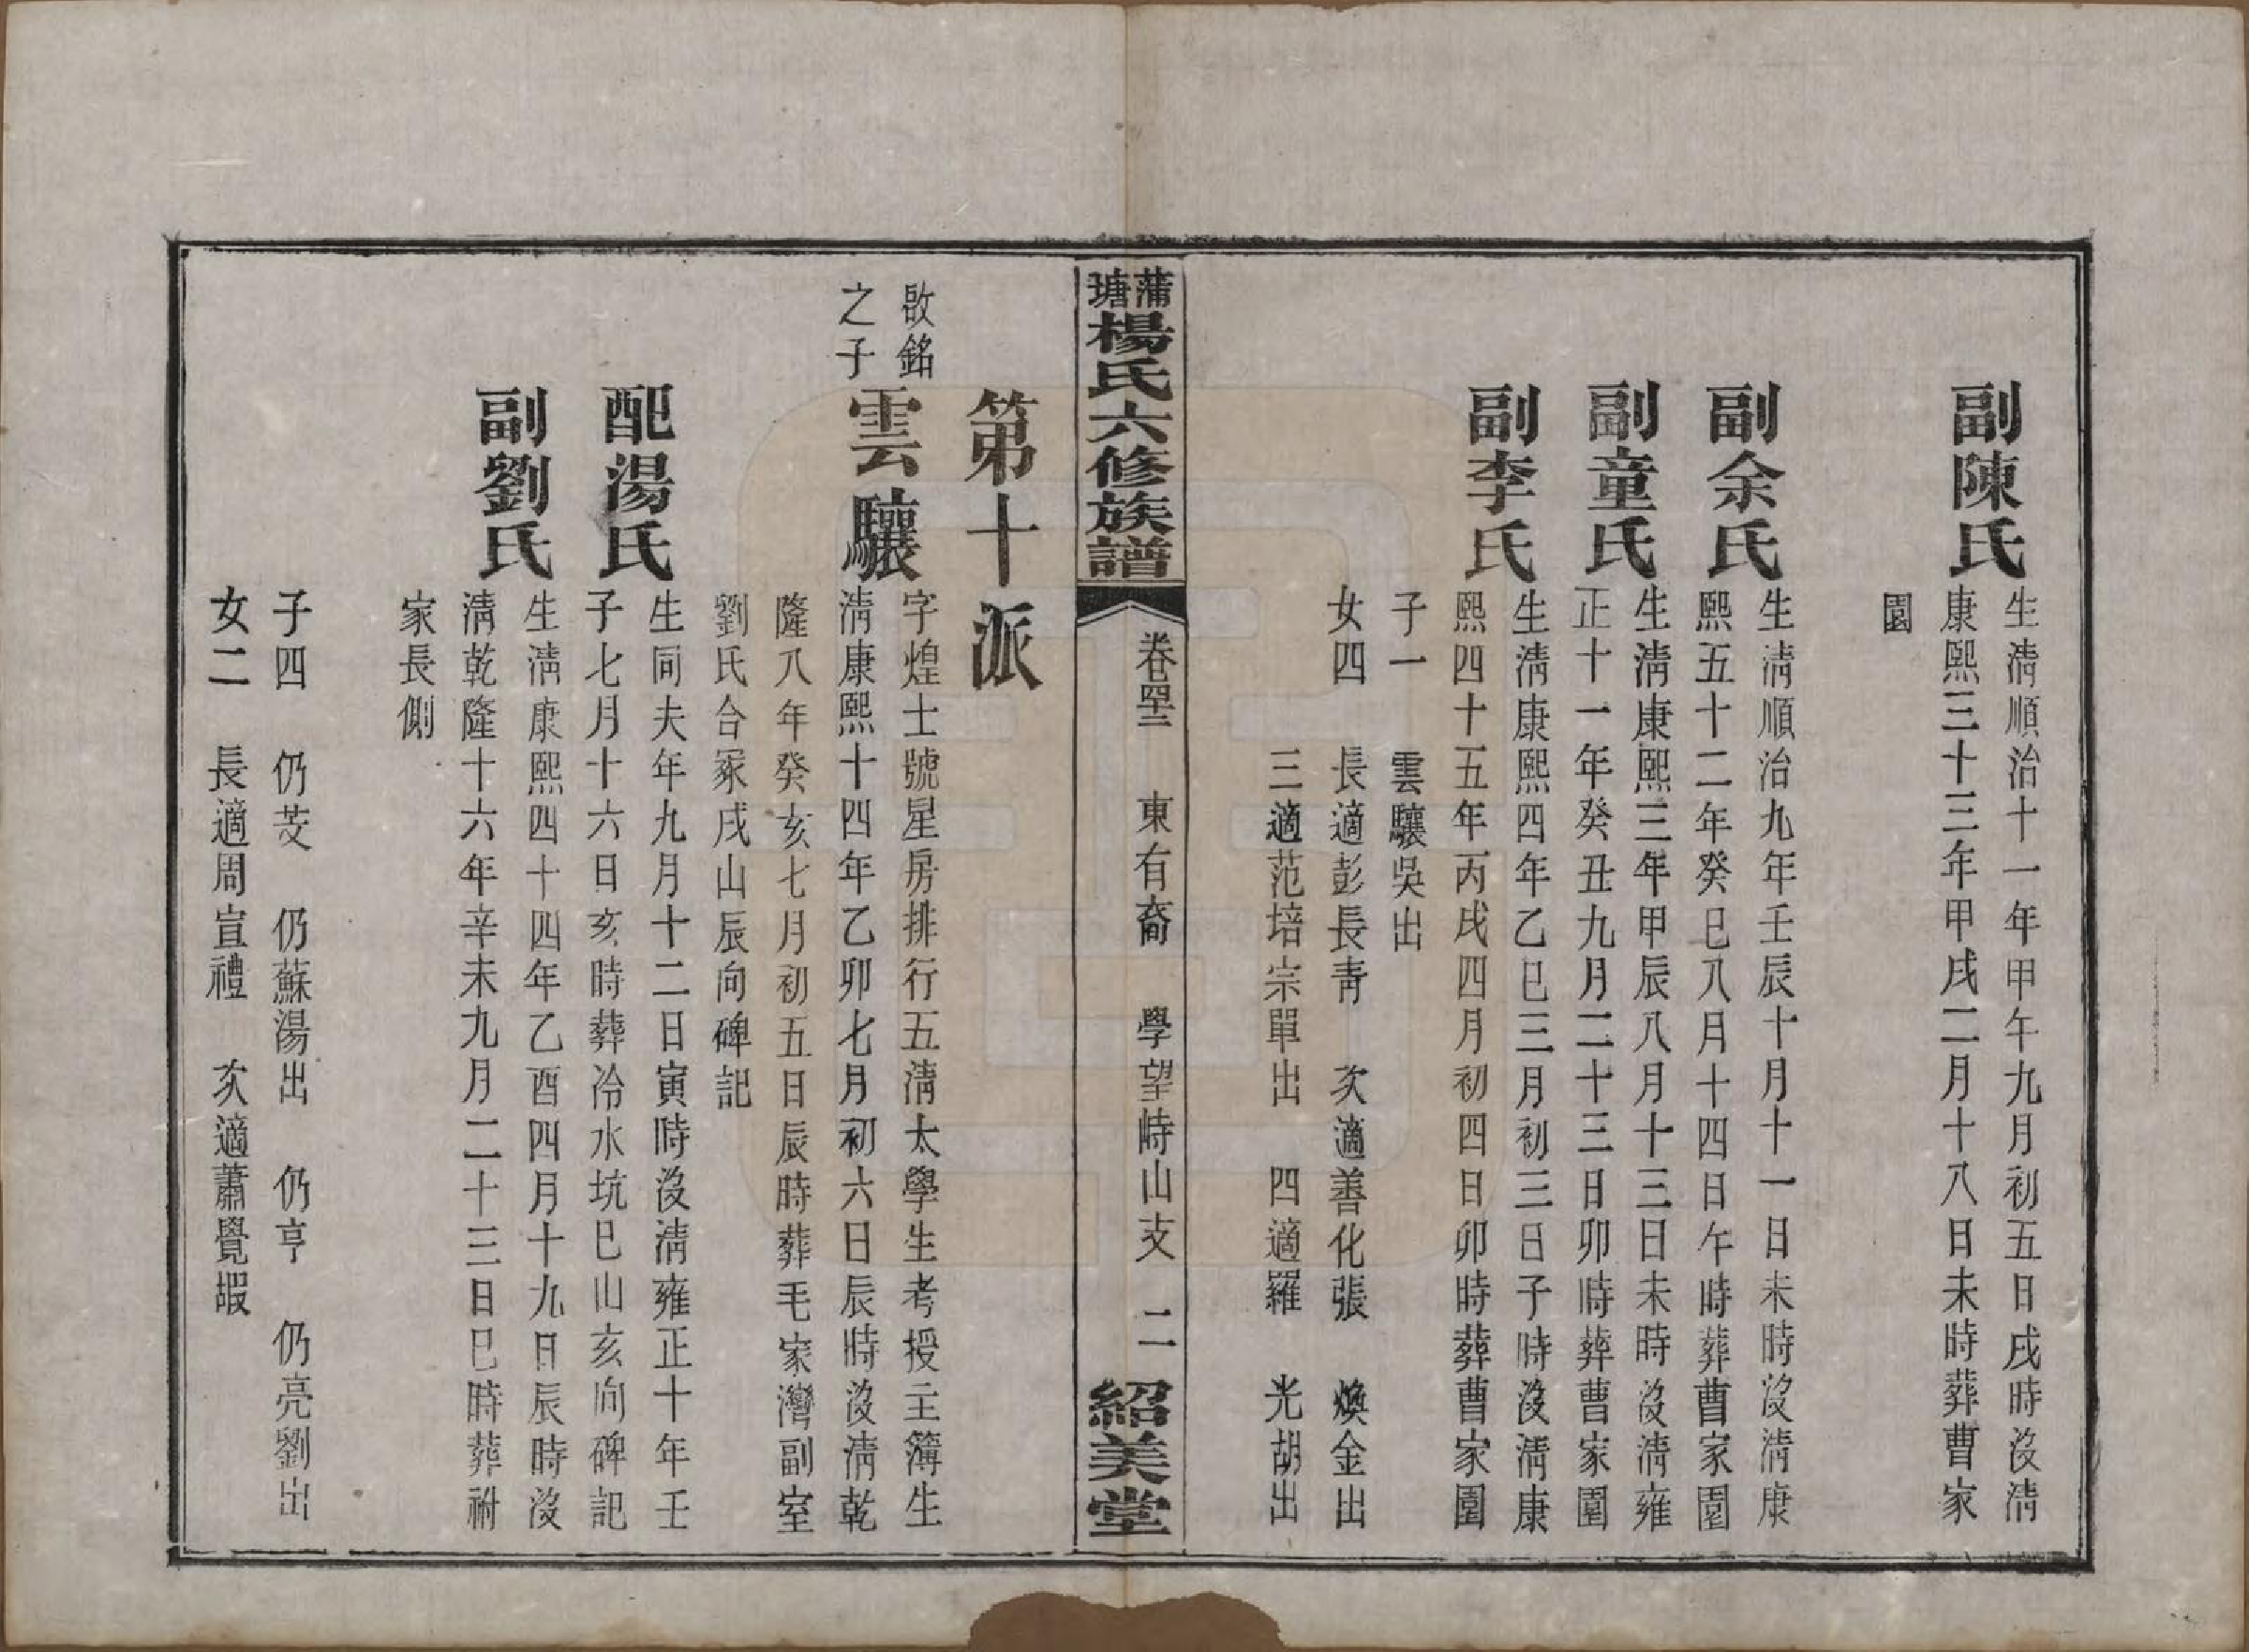 副陳氏
生淸順治十一年甲午九月初五日戌時沒淸
康熙三十三年甲戌二月十八日未時葬曹家
園
副余氏
生淸順治九年壬辰十月十一日未時沒淸康
熙五十二年癸巳八月十四日午時葬曹家園
副童氏
生淸康熙三年甲辰八月十三日未時沒淸雍
正十一年癸丑九月二十三日卯時葬曹家園
副李氏
生淸康熙四年乙巳三月初三日子時沒淸康
熙四十五年丙戌四月初四日卯時葬曹家園
子一 雲驤吳出
女四 長適彭長靑 次適善化張 煥金出
三適范培宗單出 四適羅 光胡出
蒲塘楊氏六修族譜
卷四十二 東有裔 學望峙山支 二
紹美堂
第十派
啟銘
之子
雲驤
字煌士號星房排行五淸太學生考授主簿生
淸康熙十四年乙卯七月初六日辰時沒淸乾
隆八年癸亥七月初五日辰時葬毛家灣副室
劉氏合冢戌山辰向碑記
配湯氏
生同夫年九月十二日寅時沒淸雍正十年壬
子七月十六日亥時葬冷水坑巳山亥向碑記
副劉氏
生淸康熙四十四年乙酉四月十九日辰時沒
淸乾隆十六年辛未九月二十三日巳時葬祔
家長側
子四 仍芰 仍蘇湯出 仍亨 仍亮劉出
女二 長適周宣禮 次適蕭覺嘏